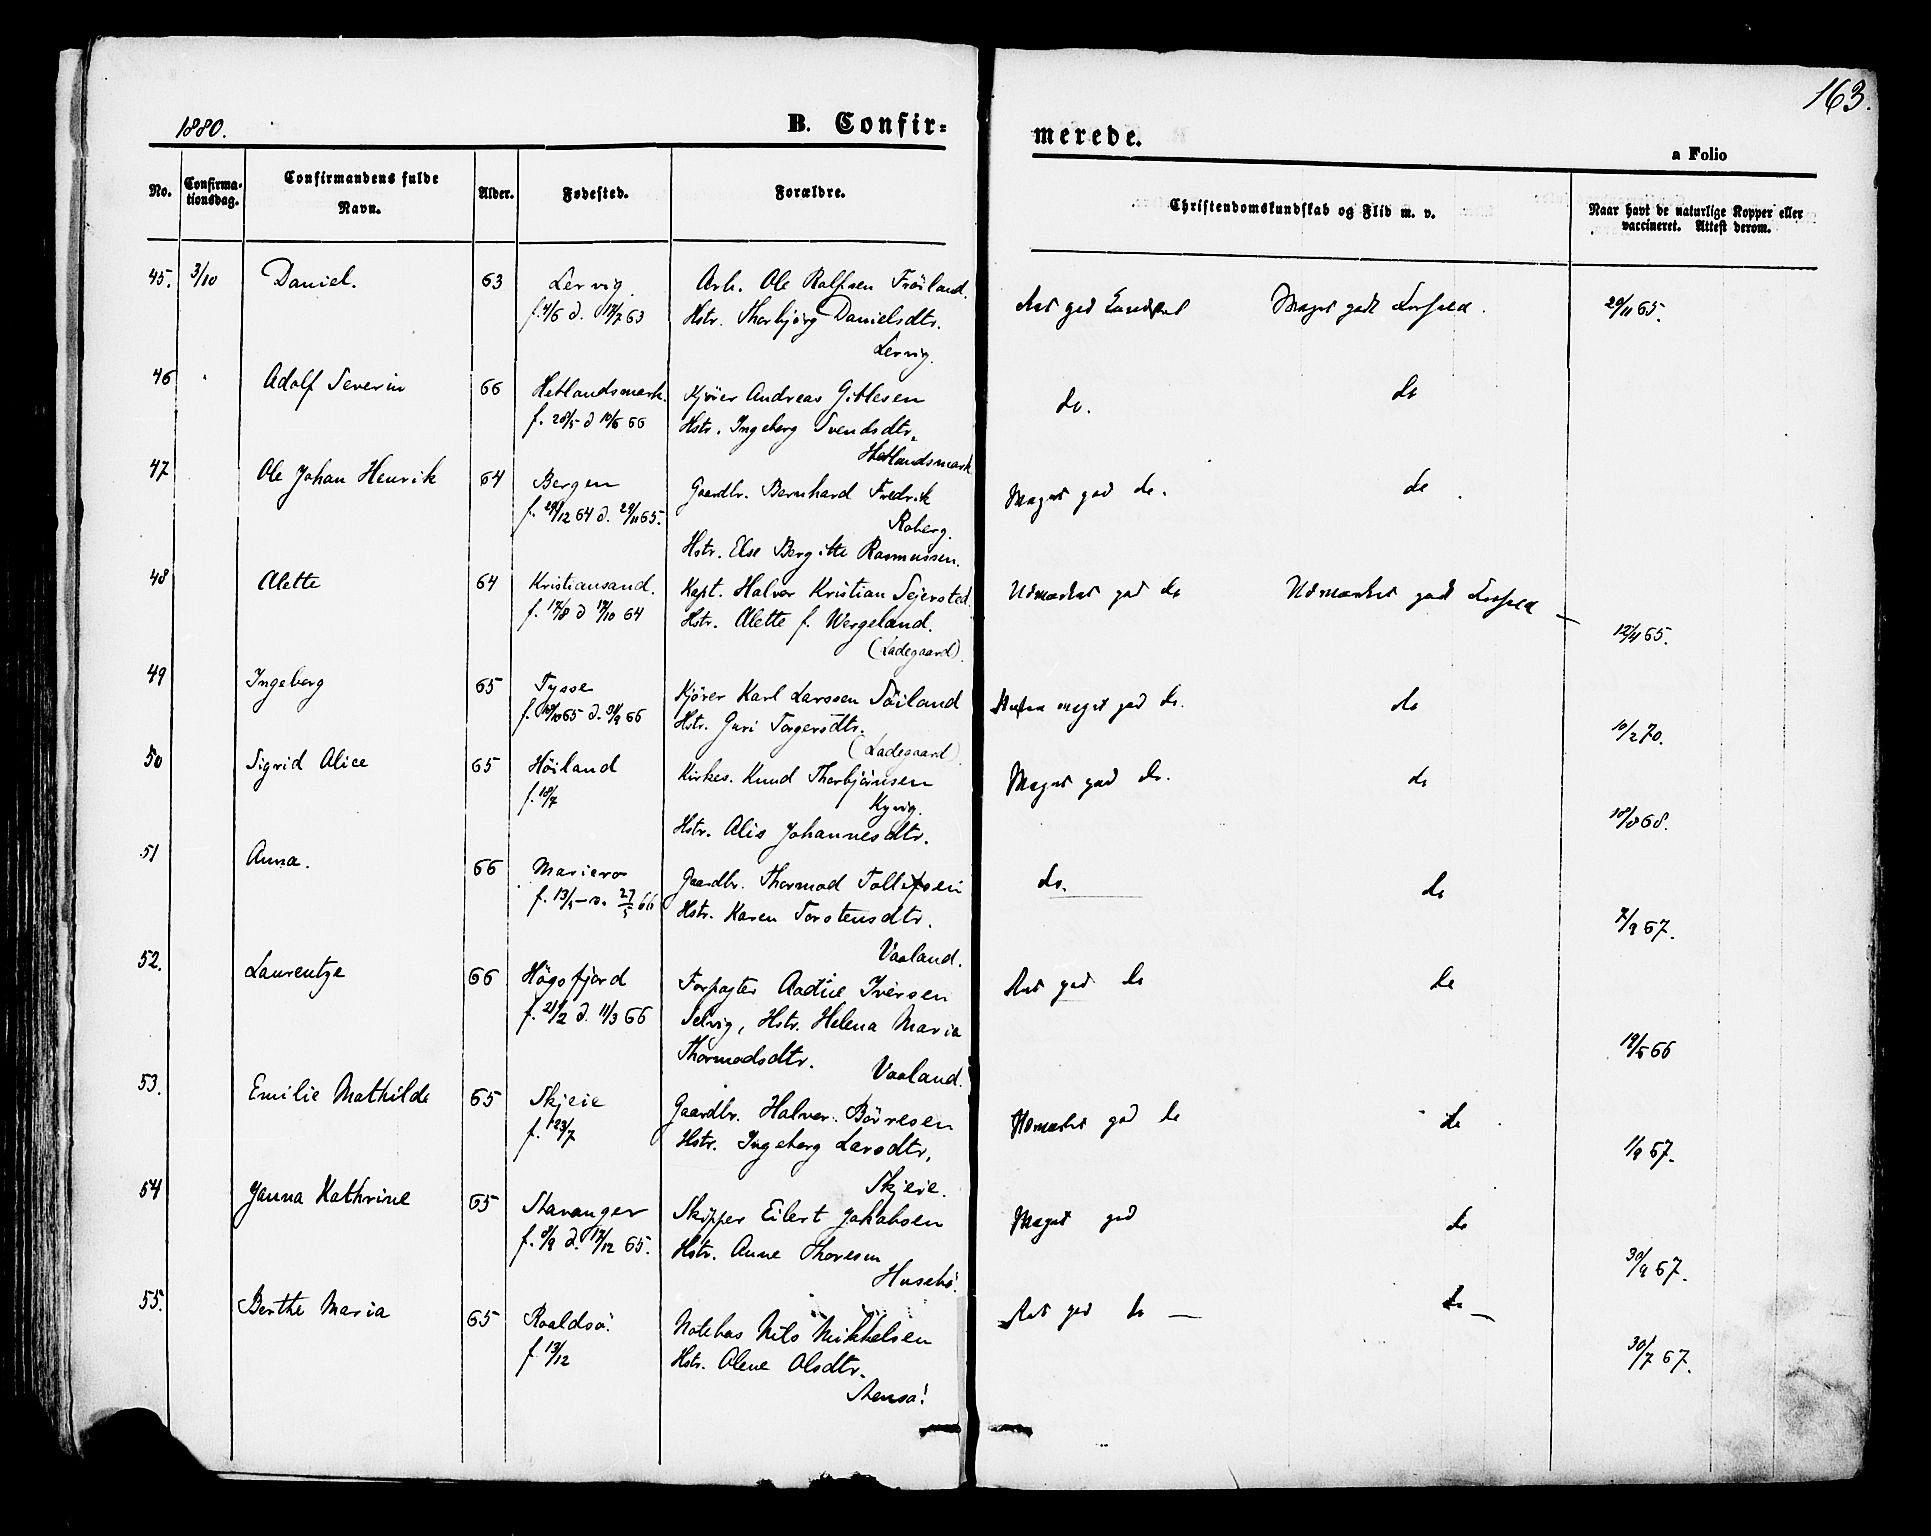 163.
1880.
B. Confir=
merede.
a Folio
No.
Confirma-
tionsdag.
Confirmandens fulde
Navn.
Alder.
Fødested.
Forældre.
Christendomskundskab og Flid m. v.
Naar havt de naturlige Kopper eller
vaccineret. Attest derom.
45. 3/10 Daniel. 63 Lervig. Arb. Ole Rolfsen Fröiland.
f. 4/6 d. 12/7 63 Hstr. Thorbjørg Danielsdtr.
Lervig.
Ret god Kundskab Meget godt Forhold. 29/11 65.
46 Adolf Severin 66 Hetlandsmark. Kjörer Andreas Gitlesen
f. 28/5 d 10/6 66 Hstr. Ingeborg Svendsdtr.
Hetlandsmark
do. do
47 Ole Johan Henrik 64 Bergen Gaardbr. Bernhard Fredrik
f. 29/12 64 d. 29/11 65. Roberg.
Hstr. Else Bergitte Rasmussen.
Meget god do. do
48 Alette 64 Kristiansand. Kapt. Halvor Kristian Sejersted.
f. 17/8 d 17/10 64 Hstr. Alette f. Wergeland.
(Ladegaard).
Udmærket god do Udmærket godt Forhold — 12/11 65.
49 Ingeborg 65 Tysse Kjörer Karl Larssen Söiland
f. 10/10 65 d. 31/9 66 Hstr. Guri Torgersdtr.
(Ladegaard)
meget god do. do 10/2 70.
50 Sigrid Alice 65 Höiland Kirkes. Knud Thorbjörnsen
f. 18/7 Kyvig.
Hstr. Alis Johannesdtr.
Meget god do. do 18/8 68.
51 Anna. 66 Mariero Gaardbr. Thormod Tollefsen
f. 13/4 — d. 27/5 66 Hstr. Karen Torstensdtr.
Vaaland.
do. do 7/9 67.
52. Laurentze 66 Högsfjord Forpagter Aadne Iversen
f. 21/2 d. 11/3 66 Selvig, Hstr. Helena Maria
Thormodsdtr.
Vaaland.
Ret god do do 19/5 66
53. Emilie Mathilde 65 Skjeie Gaardbr. Halvor Börresen
f. 23/7 Hstr. Ingeborg Larsdtr,
Skjeie.
Udmærket god do do 1/9 67.
54 Janna Kathrine 65 Stavanger Skipper Eilert Jakobsen
f. 8/9 d. 17/12 65. Hstr. Anne Thoresen
Husebö.
Meget god do 30/9 67.
55. Berthe Maria 65 Roaldsö. Notebas Nils Mikkelsen
f. 13/12 Hstr. Olene Olsdtr.
Stensö!
Ret god do — do — 30/7 67.